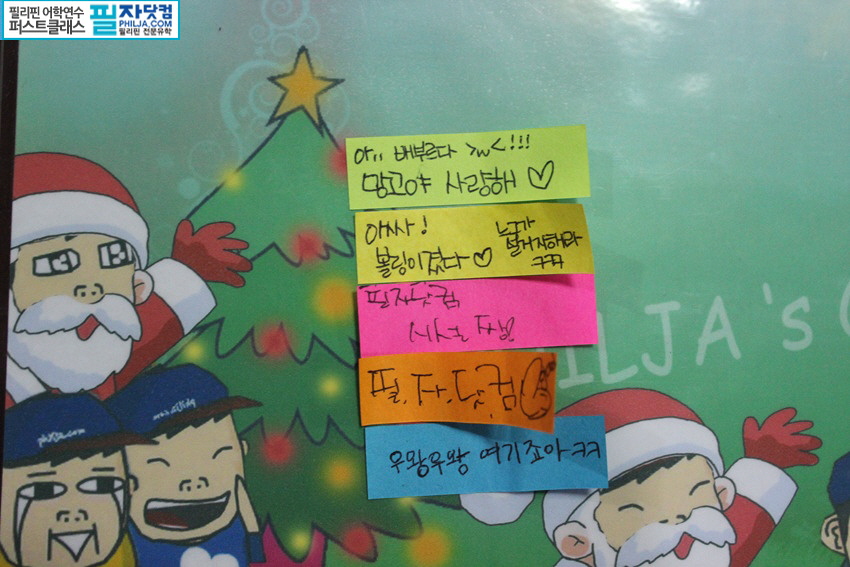 필리핀 어학연수
퍼스트클래스
필자닷컴
PHILJA.COM
필리핀 전문유학
아.. 배부르다 >w<!!!
망고야 사랑해 ♡
아싸!
볼링이겼다 ♡
누가
설거지해라
ㅋㅋㅋ
필자닷컴
시설 짱!
필.자.닷.컴
우왕우왕 여기죠아ㅋㅋ
PHILJA's
philja.com